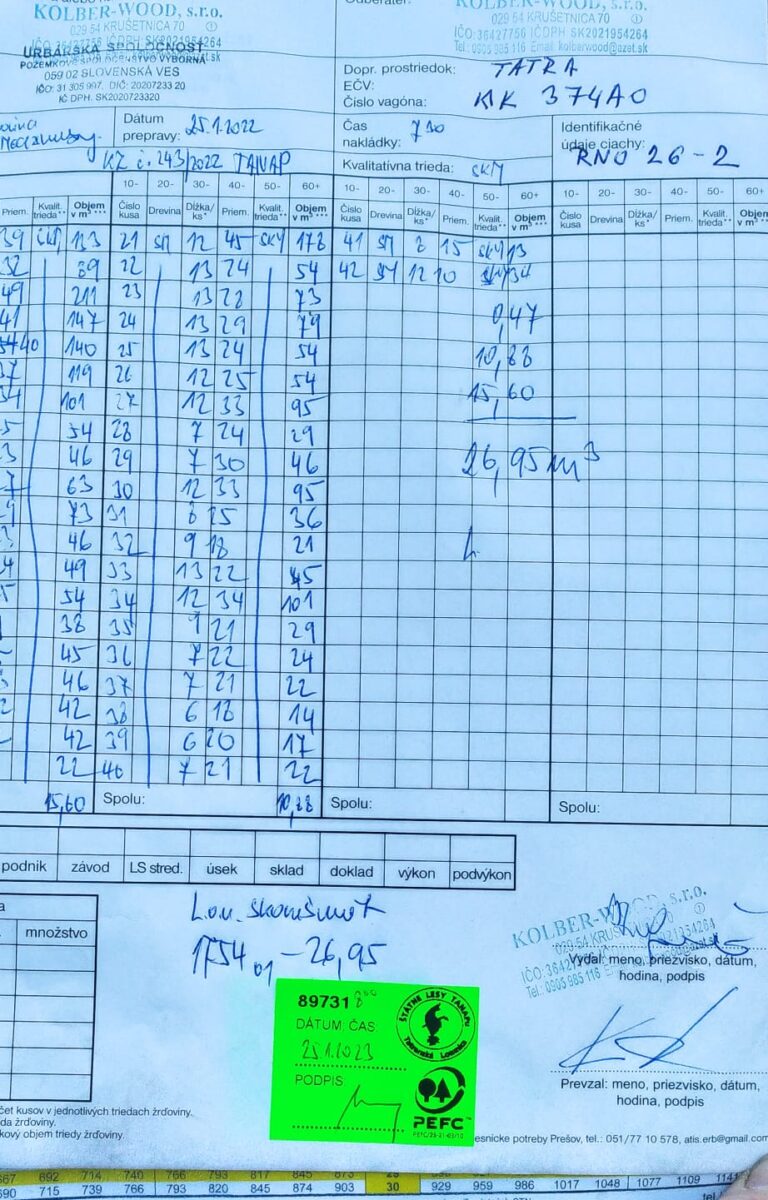 KOLBER-WOOD, s.r.o.
029 54 KRUŠETNICA 70
IČO: 36427756 IČDPH SK2021954264
URBÁRSKA SPOLOČNOSŤ
POZEMKOVÉ SPOLOČENSTVO VÝBORNÁ
059 02 SLOVENSKÁ VES
IČO: 31 305 997, DIČ: 2020723320
IČ DPH. SK2020723320
KOLBER-WOOD, s.r.o.
029 54 KRUŠETNICA 70
IČO: 36427756 IČDPH SK2021954264
Tel.: 0905 985 116 Email: kolberwood@azet.sk
Dopr. prostriedok: TATRA
EČV:
Číslo vagóna: KK 374AO
Dátum prepravy: 25.1.2022
Čas nakládky: 7 30
Identifikačné údaje ciachy: RNO 26-2
KZ č. 243/2022 TANAP
Kvalitatívna trieda: SKM
10- 20- 30- 40- 50- 60+ 10- 20- 30- 40- 50- 60+ 10- 20- 30- 40- 50- 60+
Priem. Kvalit. trieda** Objem v m³ *** Číslo kusa Drevina Dĺžka/ ks* Priem. Kvalit. trieda** Objem v m³ *** Číslo kusa Drevina Dĺžka/ ks* Priem. Kvalit. trieda** Objem v m³ *** Číslo kusa Drevina Dĺžka/ ks* Priem. Kvalit. trieda** Objem v m³
39 133 21 SM 12 45 SKM 178 41 SM 8 15 SKM 13
32 89 22 13 24 54 42 SM 12 10 34
49 211 23 13 28 73
41 147 24 13 29 79 0,47
40 140 25 13 24 54 10,88
37 119 26 12 25 54 15,60
34 101 27 12 33 95
54 28 7 24 29
46 29 7 30 46 26,95 m³
63 30 12 33 95
73 31 8 25 36
46 32 9 18 21
49 33 13 22 45
54 34 12 34 101
38 35 9 21 29
45 36 7 22 24
46 37 7 21 22
42 38 6 18 14
42 39 6 20 17
22 40 7 21 22
15,60 Spolu: 10,88 Spolu: Spolu:
podnik závod LS stred. úsek sklad doklad výkon podvýkon
množstvo
1754 01 - 26,95
KOLBER-WOOD, s.r.o.
Vydal: meno, priezvisko, dátum,
hodina, podpis
89731
DÁTUM, ČAS
25.1.2023
PODPIS
ŠTÁTNE LESY TANAPU
Tatranská Lomnica
PEFC
Prevzal: meno, priezvisko, dátum,
hodina, podpis
čet kusov v jednotlivých triedach žrďoviny.
da žrďoviny.
kový objem triedy žrďoviny.
esnícke potreby Prešov, tel.: 051/77 10 578, atis.erb@gmail.com
667 692 714 740 766 793 817 845 873
690 715 739 766 793 820 845 874 903 30 929 959 986 1017 1048 1077 1109 1141